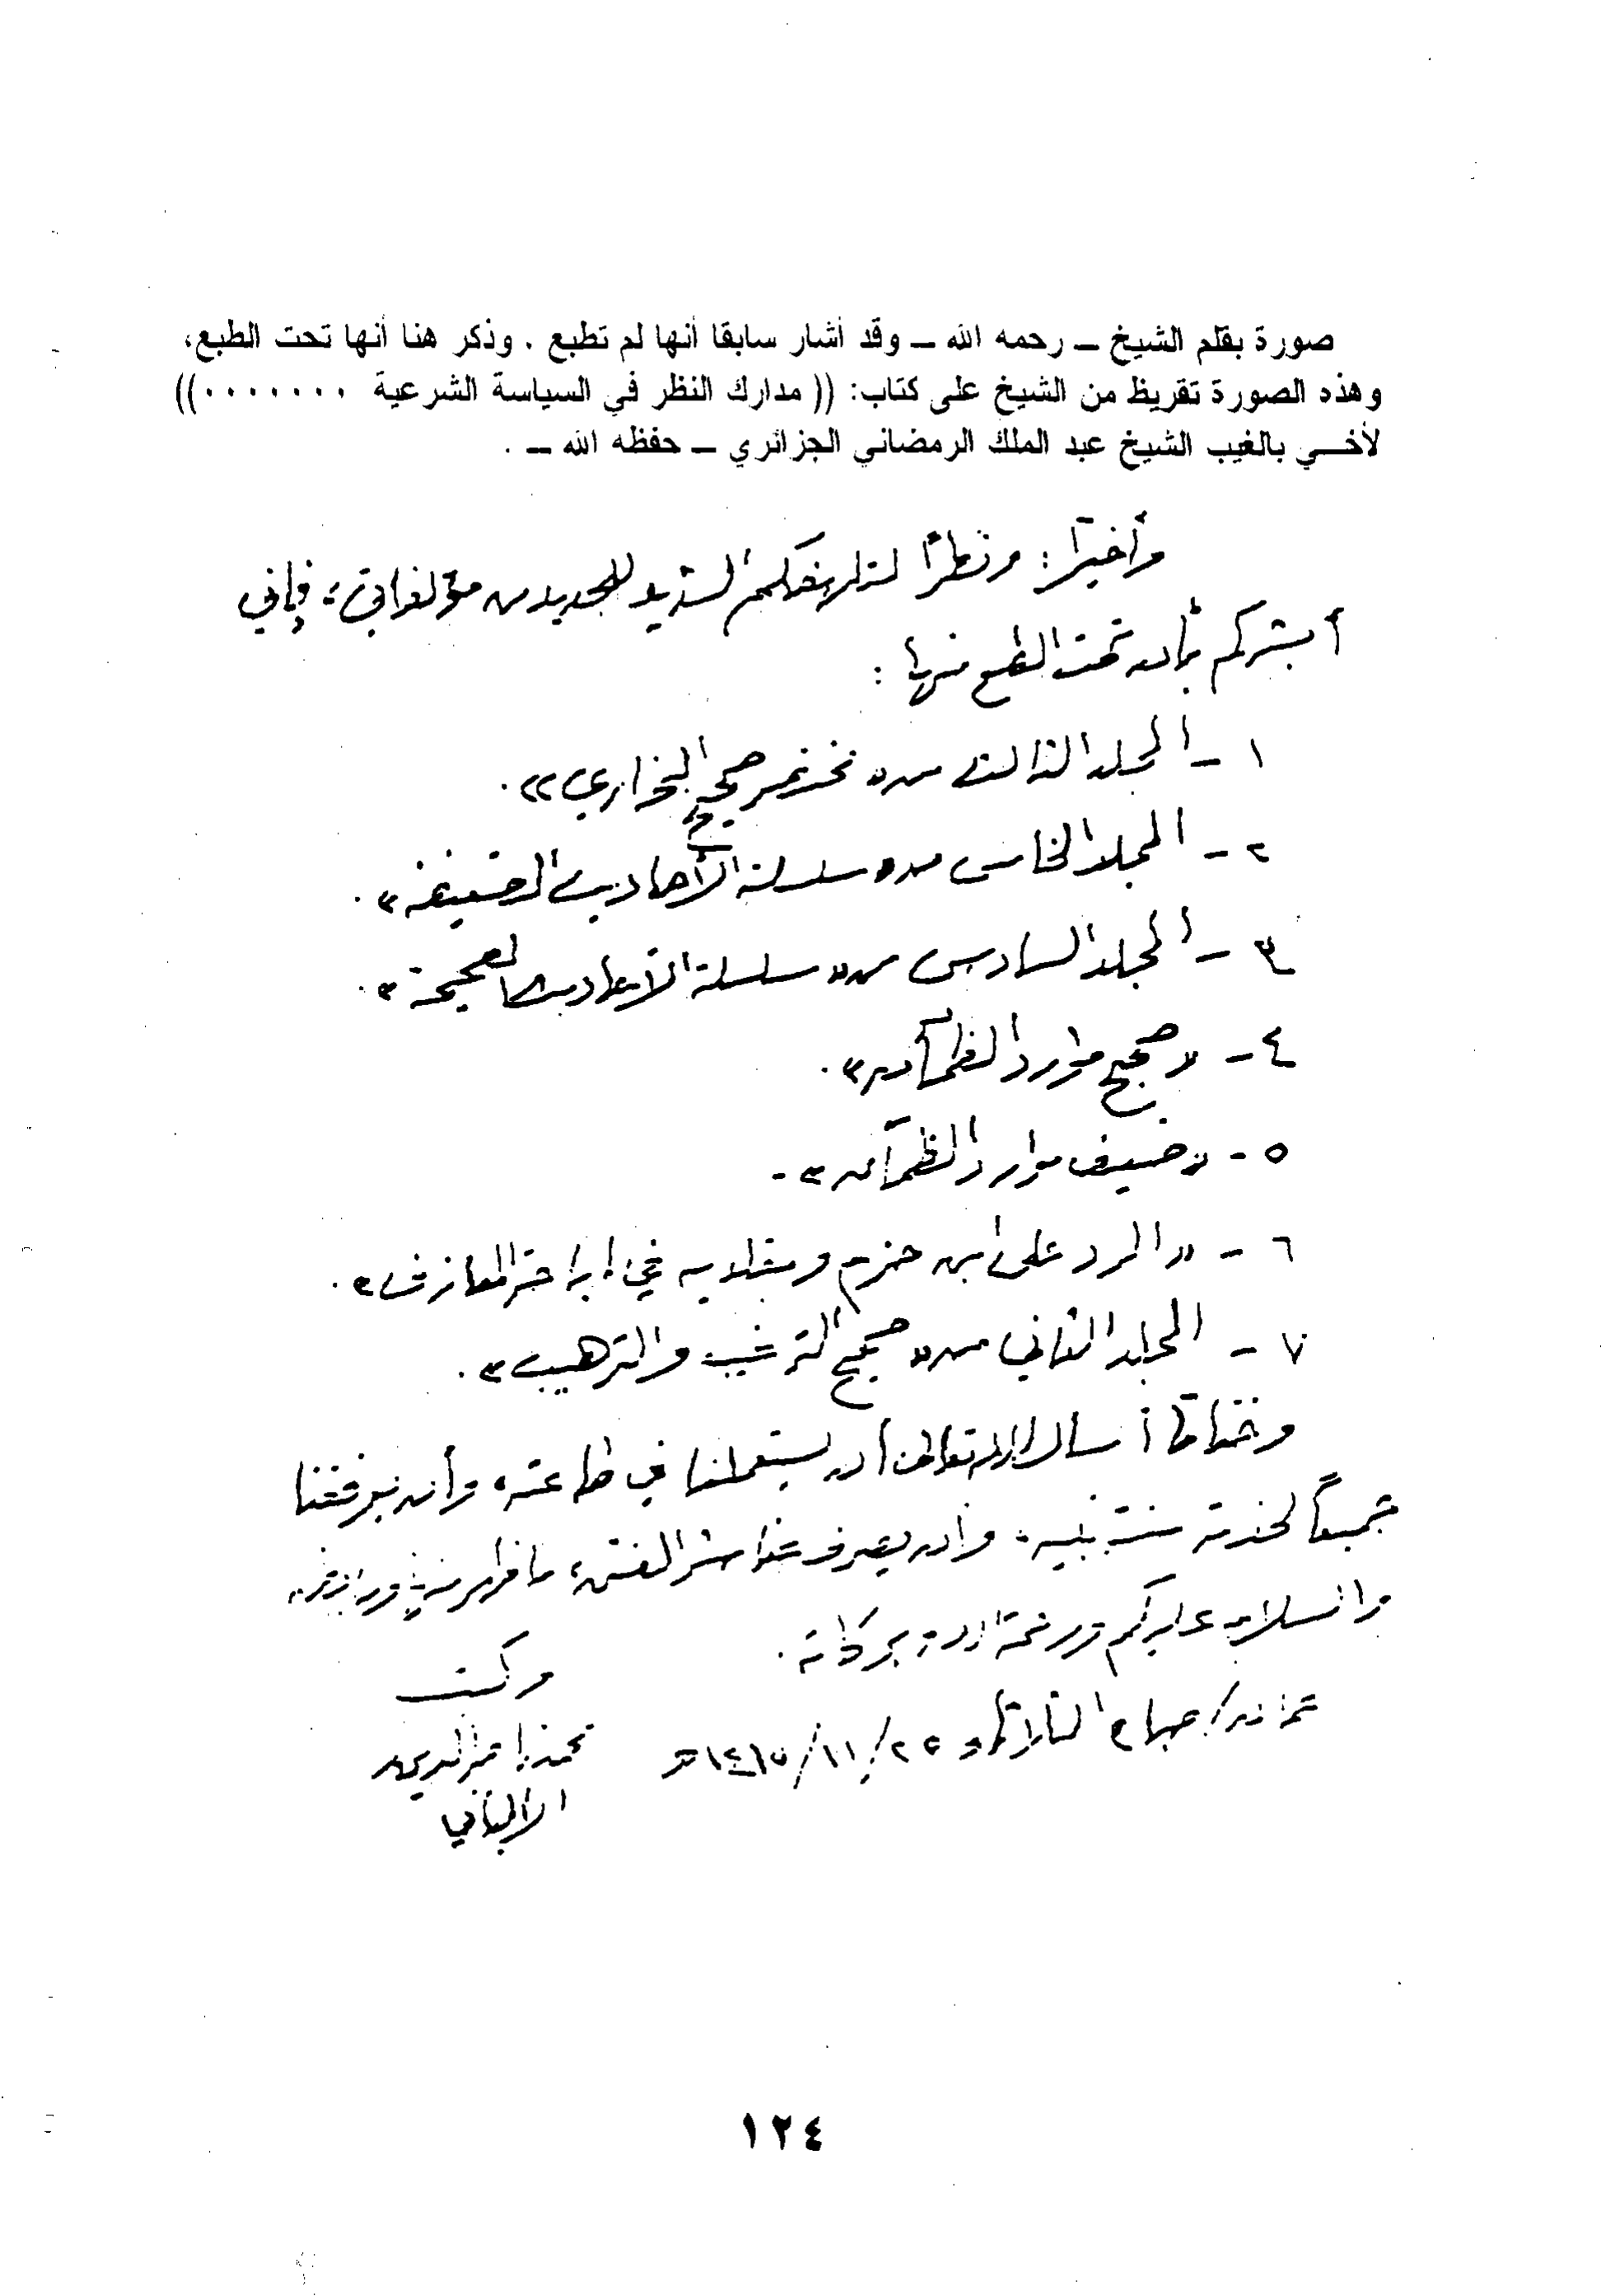 صورة بقلم الشيخ ــ رحمه الله ــ وقد أشار سابقا أنها لم تطبع . وذكر هنا أنها تحت الطبع،
وهذه الصورة تقريظ من الشيخ على كتاب: (( مدارك النظر في السياسة الشرعية ٠٠٠٠٠٠٠))
لأخــي بالغيب الشيخ عبد الملك الرمضاني الجزائري ــ حفظه الله ــ .
وأخيراً : ونظراً لتلهفكم الشديد للجديد من مؤلفاتي، فإني
أبشركم بأن تحت الطبع منها :
١ - المجلد الثالث من « مختصر صحيح البخاري » .
٢ - المجلد الخامس من « سلسلة الأحاديث الضعيفة » .
٣ - المجلد السادس من « سلسلة الأحاديث الصحيحة » .
٤ - « صحيح موارد الظمآن » .
٥ - « ضعيف موارد الظمآن » .
٦ - « الرد على ابن حزم ومقلديه في إباحة المعازف » .
٧ - المجلد الثاني من « صحيح الترغيب والترهيب » .
وختاماً أسأل الله تعالى أن يستعملنا في طاعته، وأن يوفقنا
جميعاً لخدمة سنة نبيه، وأن يصرف عنا شر الفتن، ما ظهر منها وما بطن.
والسلام عليكم ورحمة الله وبركاته .
وكتب
عمان / صباح الثلاثاء ٢٥/١١/١٤١٥هـ
محمد ناصر الدين
الألباني
١٢٤